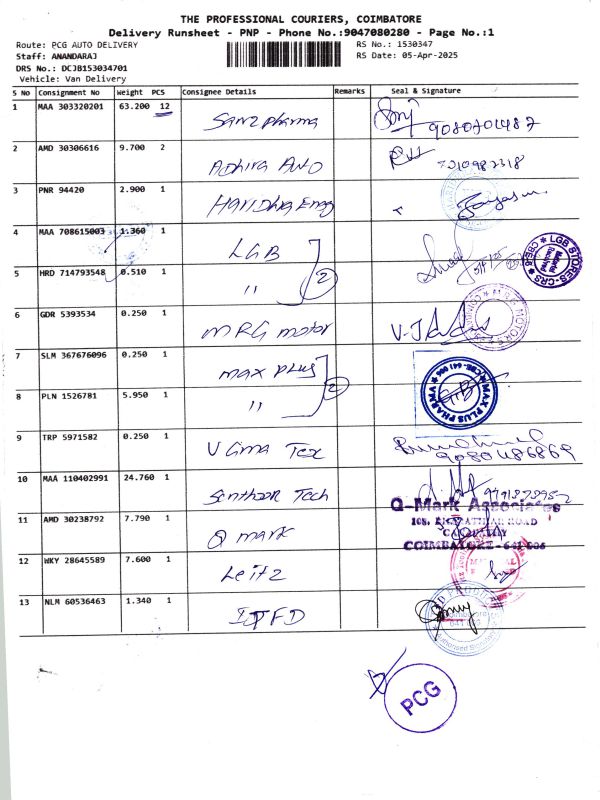 THE PROFESSIONAL COURIERS, COIMBATORE
Delivery Runsheet - PNP - Phone No.:9047080280 - Page No.:1
Route: PCG AUTO DELIVERY
RS No.: 1530347
Staff: ANANDARAJ
RS Date: 05-Apr-2025
DRS No.: DCJB153034701
Vehicle: Van Delivery
S No Consignment No Weight PCS Consignee Details Remarks Seal & Signature
1 MAA 303320201 63.200 12 Sanz pharma 9080701487
2 AMD 30306616 9.700 2 Adhira Auto
3 PNR 94420 2.900 1 Haridhra Engg
4 MAA 708615003 1.360 1 LGB
LGB STORES-CRS
5 HRD 714793548 0.510 1 " 2
6 GDR 5393534 0.250 1 MRG motor
7 SLM 367676096 0.250 1 max plus
MAX PLUS PHARMA
8 PLN 1526781 5.950 1 " 2
9 TRP 5971582 0.250 1 V Gima Tex 9080486869
10 MAA 110402991 24.760 1 Senthoor Tech
Q-Mark Associates
11 AMD 30238792 7.790 1 Q mark
COIMBATORE - 641 006
12 WKY 28645589 7.600 1 Leitz
13 NLM 60536463 1.340 1
PCG